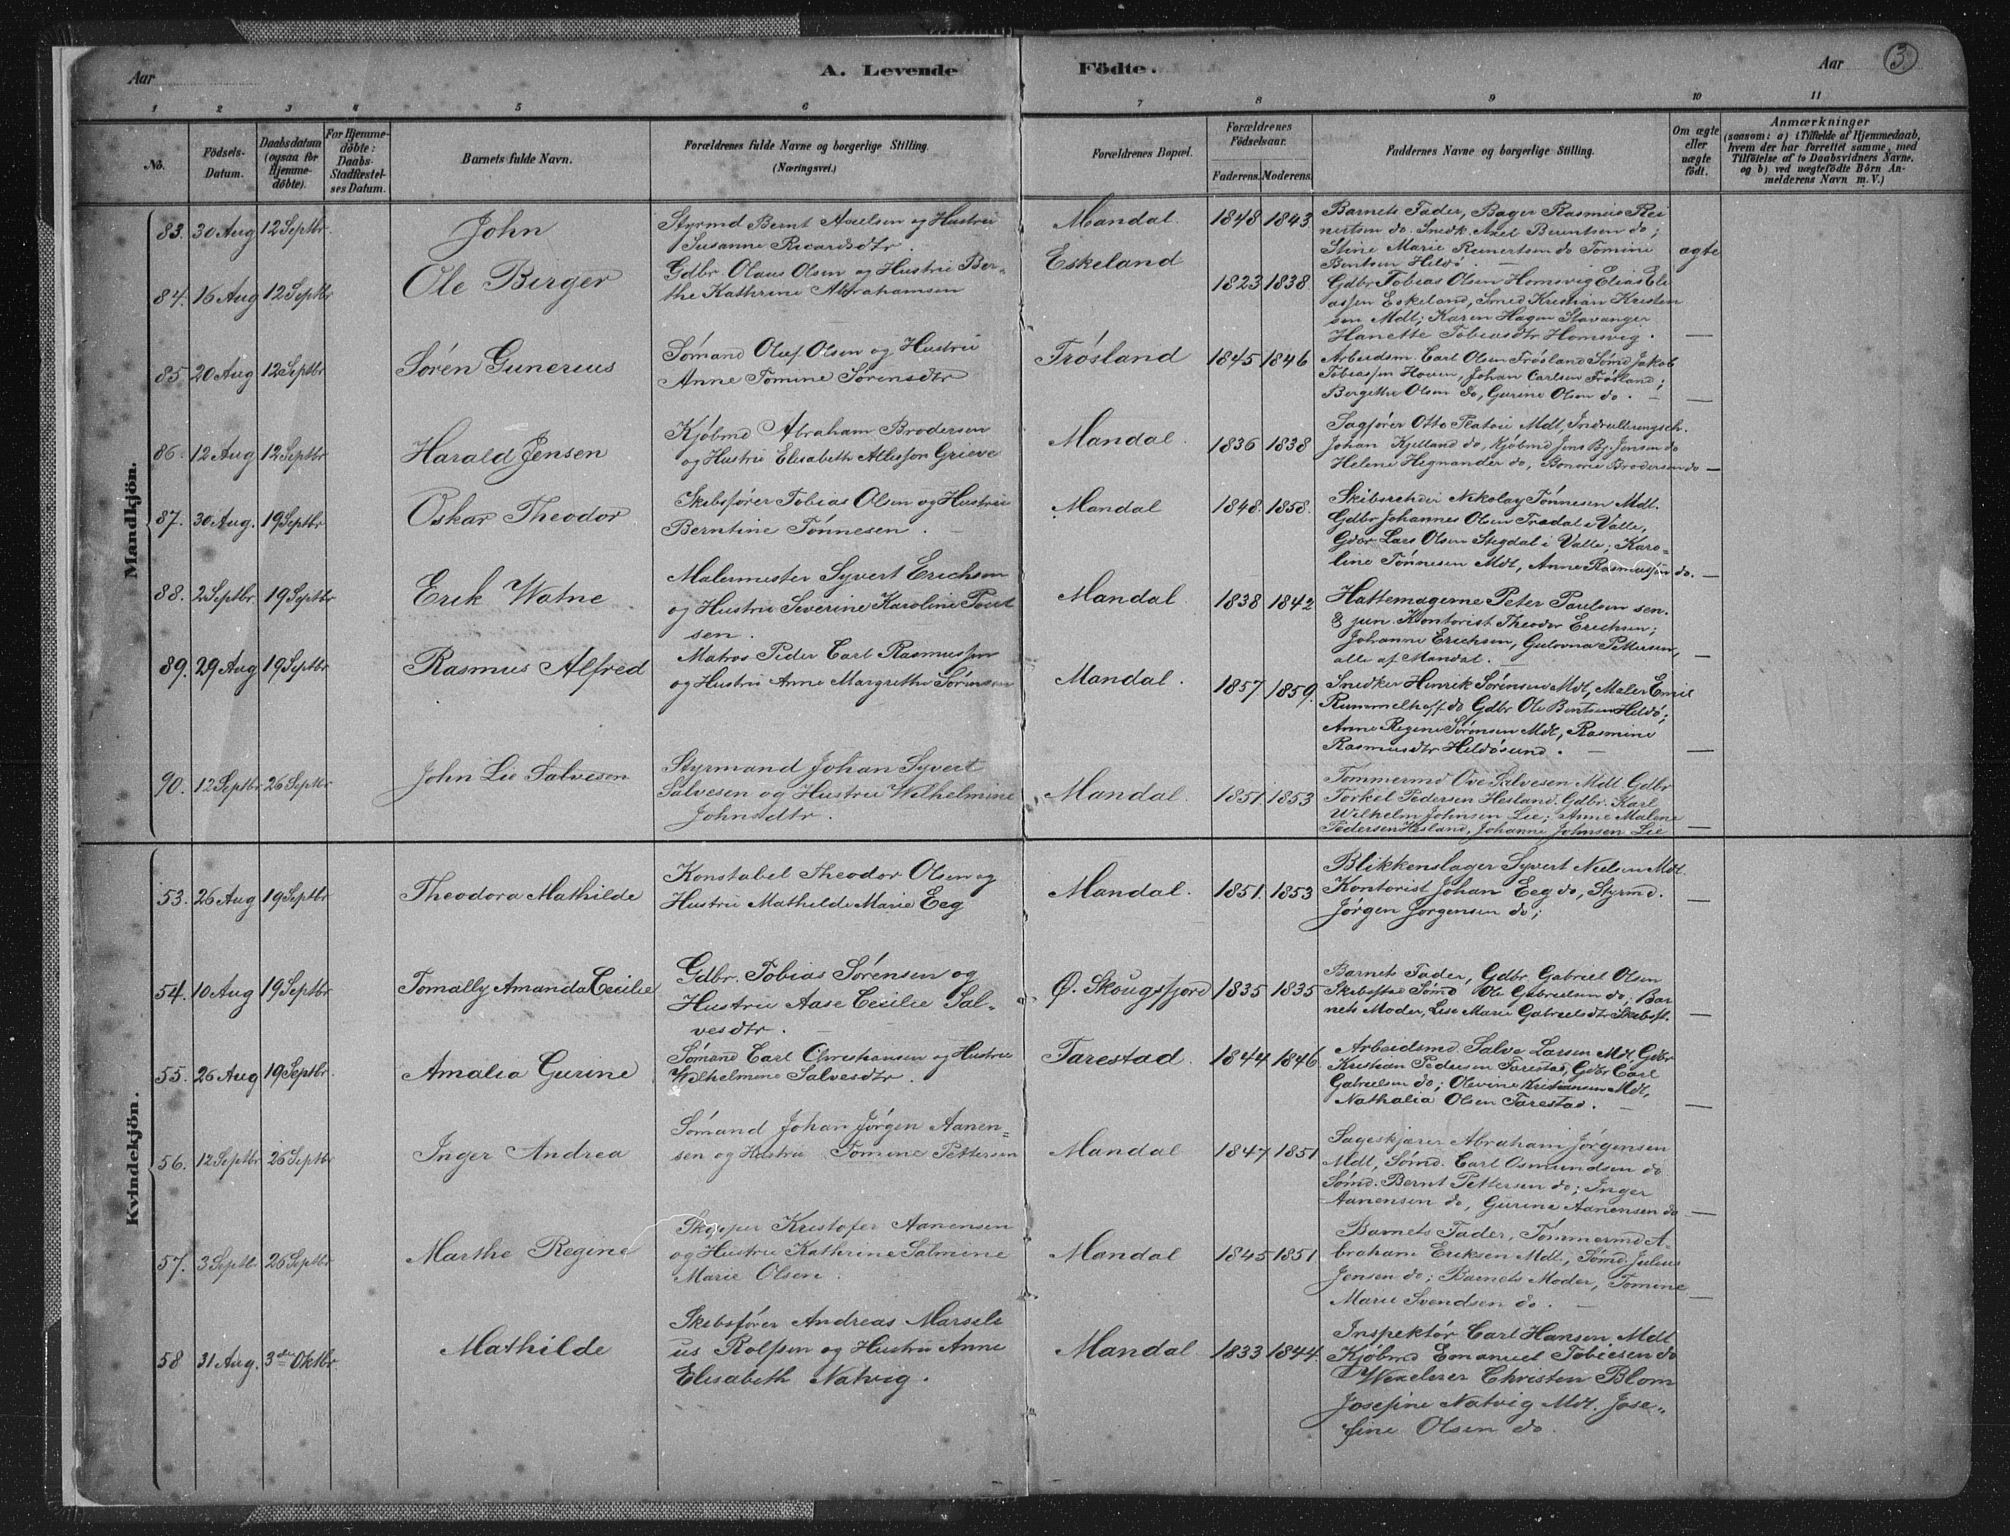 Aar
A. Levende
Födte.
Aar
3
1 2 3 4 5 6 7 8 9 10 11
No.
Födsels-
Datum.
Daabsdatum
(ogsaa for
Hjemme-
döbte).
For Hjemme-
döbte:
Daabs-
Stadfæstel-
ses Datum.
Barnets fulde Navn.
Forældrenes fulde Navne og borgerlige Stilling.
(Næringsvei.)
Forældrenes Bopæl.
Forældrenes
Födselsaar.
Faderens. Moderens.
Faddernes Navne og borgerlige Stilling.
Om ægte
eller
uægte
födt.
Anmærkninger
(saasom: a) i Tilfælde af Hjemmedaab,
hvem der har forrettet samme, med
Tilföielse af to Daabsvidners Navne.
og b) ved uægtefödte Börn An-
melderens Navn m. V.)
Mandkjön.
83. 30 Aug 12 Septbr
John
Styrmd Bernt Axelsen og Hustru
Susanne Ricardsdtr.
Mandal
1848 1843
Barnets Fader, Bager Rasmus Rei
nertsen do. Snedk. Axel Berentsen do;
Stine Marie Reinertsen do Tomine
Bentsen Hildö. —
ægte
84. 16 Aug 12 Septbr
Ole Birger
Gdbr Olaus Olsen og Hustru Ber-
the Kathrine Abrahamsen
Eskeland
1823 1838
Gdbr Tobias Olsen Homsvig Elias Eli
assen Eskeland, Smed Kristian Kristen
sen Mdl; Karen Hagen Stavanger
Hanette Tobiasdtr Homsvig. —
85 20 Aug 12 Septbr
Sören Gunerius
Sömand Oluf Olsen og Hustru
Anne Tomine Sörensdtr
Trösland
1845 1846
Arbeidsm. Carl Olsen Trösland Sömd Jakob
Tobiassen Hoven, Johan Carlsen Trösland;
Bergethe Olsen do, Gurine Olsen do. —
86. 12 Aug 12 Septbr
Harald Jensen
Kjöbmd Abraham Brodersen
og Hustru Elisabeth Grieve
Mandal.
1836 1838
Sagförer Otto Mdl,
Johan Kjelland do, Kjöbmd Jens By. Jensen do
Helene Hegnander do, Brodersen do —
87. 30 Aug. 19 Septbr
Oskar Theodor
Skibsförer Tobias Olsen og Hustru
Berntine Tönnesen. —
Mandal
1848. 1858.
Skibsreder Nikolay Tönnesen Mdl.
Gdbr Johannes Olsen i Valle,
Gdbr Lars Olsen Stegdal i Valle; Karo-
line Tönnesen Mdl, Anne Rasmussen do. —
88. 2 Septbr. 19 Septbr
Erik Watne
Malermester Syvert Erichsen
og Hustru Severine Karoline Poul
sen.
Mandal
1838 1842
Hattemagerne Peter Paulsen sen.
& jun. Kontorist Theodor Erichsen;
Johanne Erichsen, Gulovna Pettersen,
alle af Mandal. —
89. 29 Aug 19 Septbr
Rasmus Alfred
Matros Peder Carl Rasmussen
og Hustru Anne Margrethe Sörensen
Mandal.
1857 1859.
Snedker Henrik Sörensen Mdl, Maler Emil
Rummelhoff do Gdbr Ole Bentsen Hildö;
Anne Regine Sörensen Mdl, Rasmine
Rasmusdtr Hildösund. —
90. 12 Septbr 26 Septbr
John Lie Salvesen
Styrmand Johan Syvert
Salvesen og Hustru Wilhelmine
Johnsdtr.
Mandal.
1851. 1853
Tömmermd Ove Salvesen Mdl. Gdbr
Torkel Pedersen Hesland. Gdbr. Karl
Wilhelm Johnsen Lie; Anne Malene
Pedersen Hesland, Johanne Johnsen Lie —
Kvindekjön.
53. 26 Aug 19 Septbr
Theodora Mathilde
Konstabel Theodor Olsen og
Hustru Mathilde Marie Eeg
Mandal.
1851. 1853
Blikkenslager Syvert Nielsen Mdl.
Kontorist Johan Eeg do, Styrmd.
Jörgen Jörgensen do; —
54. 10 Aug 19 Septbr
Tomally Amanda Cecilie
Gdbr. Tobias Sörensen og
Hustru Aase Cecilie Sal-
vesdtr. —
Ö. Skougsfjord
1835 1835
Barnets Fader, Gdbr Gabriel Olsen
Skibstad Sömd Ole Gabrielsen do; Bar
nets Moder, Lise Marie Gabrielsdtr Skibst. —
55. 26 Aug 19 Septbr.
Amalia Gurine
Sömand Carl Christiansen og Hustru
Wilhelmine Salvesdtr.
Tarestad.
1844 1846
Arbeidsmd. Salve Larsen Mdl Gdbr
Kristian Pedersen Tarestad, Gdbr Carl
Gabrielsen do; Olevine Kristiansen Mdl,
Nathalia Olsen Tarestad. —
56. 12 Septbr 26 Septbr
Inger Andrea
Sömand Johan Jörgen Aanen-
sen og Hustru Tomine Pettersen
Mandal
1847 1851
Sageskjærer Abraham Jörgensen
Mdl, Sömd. Carl Osmundsen do
Sömd. Bernt Pettersen do; Inger
Aanensen do, Gurine Aanensen do —
57. 3 Septbr 26 Septbr
Marthe Regine
Skipper Kristofer Aanensen
og Hustru Kathrine Salmine
Marie Olsen.
Mandal
1845 1851
Barnets Fader, Tömmermd A-
braham Eriksen Mdl, Sömd Julius
Jensen do; Barnets Moder, Tomine
Marie Svendsen do. —
58 31 Aug. 3die Oktbr
Mathilde
Skibsförer Andreas Marseli
us Rolfsen og Hustru Anne
Elisabeth Natvig.
Mandal
1833 1844
Inspektör Carl Hansen Mdl
Kjöbmd Emanuel Tobiesen do
Christen Blom
Josefine Natvig Mdl. Jose-
fine Olsen do.